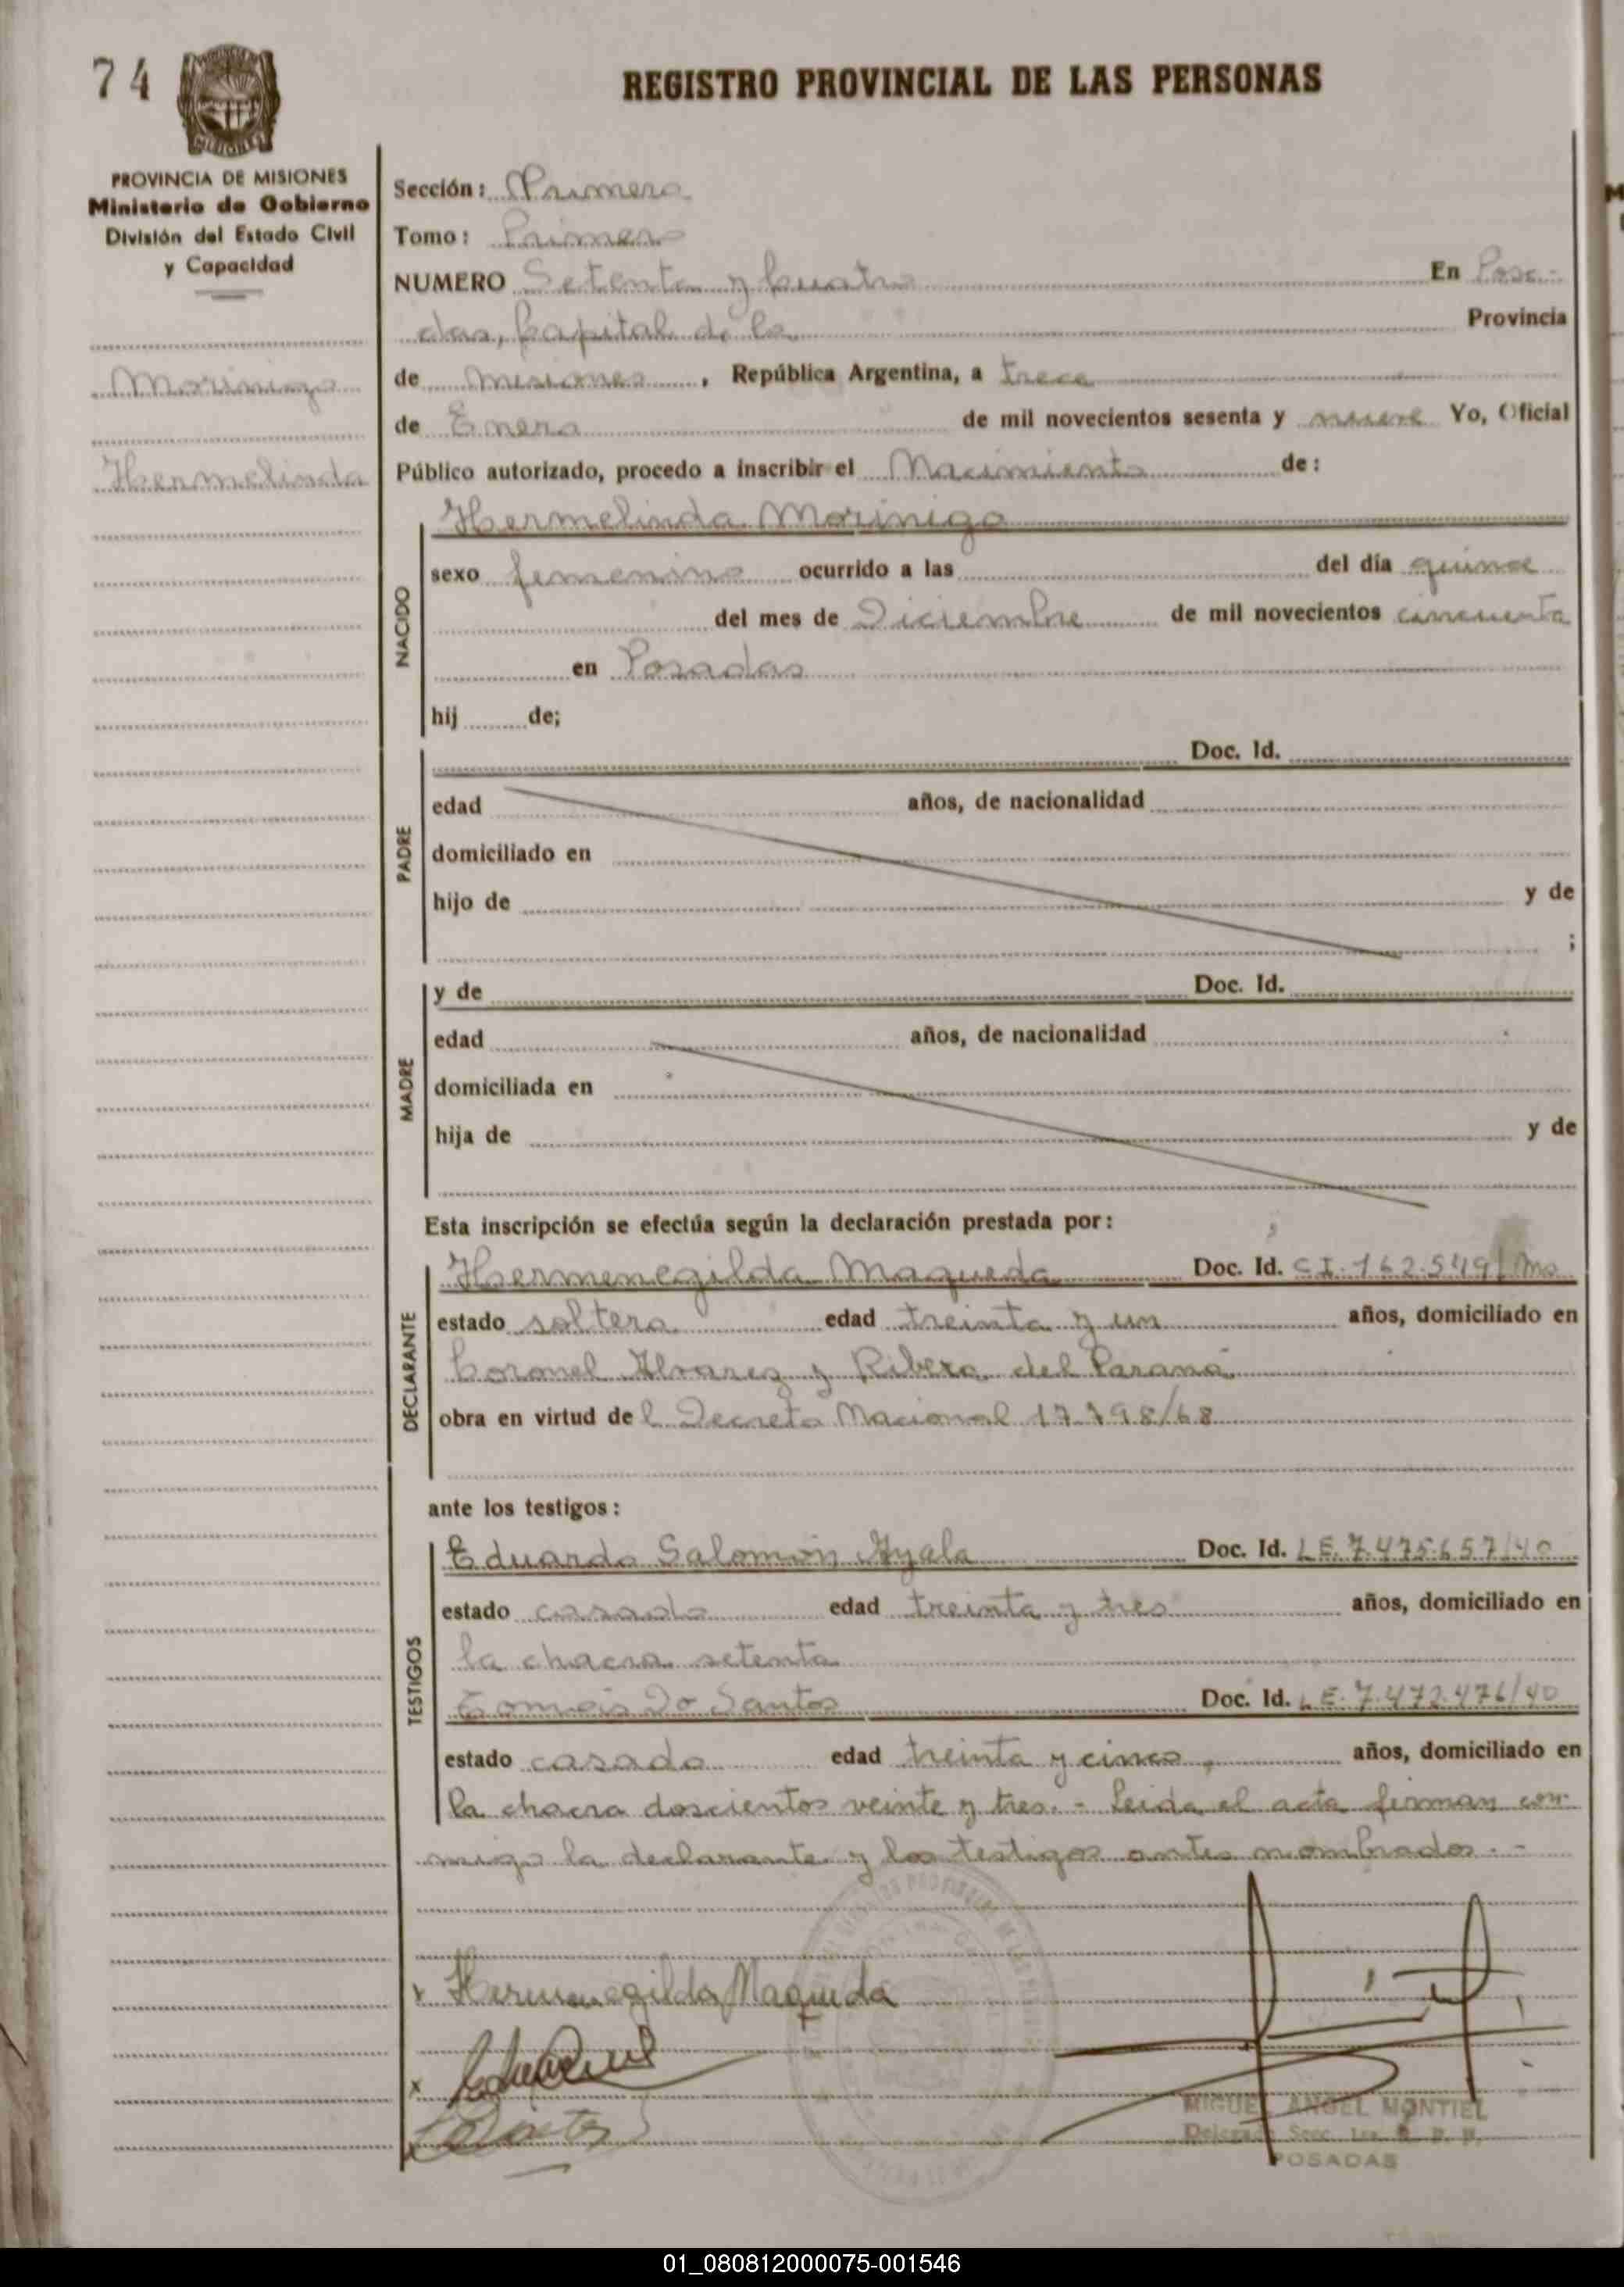 74
REGISTRO PROVINCIAL DE LAS PERSONAS
MISIONES
PROVINCIA DE MISIONES
Ministerio de Gobierno
División del Estado Civil
y Capacidad
Morinigo
Hermelinda
Sección: Primera
Tomo: Primero
NUMERO Setenta y Cuatro En Posa-
das, Capital de la Provincia
de Misiones, República Argentina, a trece
de Enero de mil novecientos sesenta y nueve Yo, Oficial
Público autorizado, procedo a inscribir el Nacimiento de:
Hermelinda Morinigo
NACIDO
sexo femenino ocurrido a las del día quince
del mes de Diciembre de mil novecientos cincuenta
en Posadas
hij de;
PADRE
Doc. Id.
edad años, de nacionalidad
domiciliado en
hijo de y de
;
MADRE
y de Doc. Id.
edad años, de nacionalidad
domiciliada en
hija de y de
Esta inscripción se efectúa según la declaración prestada por:
DECLARANTE
Hermenegilda Maqueda Doc. Id. C.I. 162.549/Mo
estado soltera edad treinta y un años, domiciliado en
Coronel Alvarez y Ribera del Paraná
obra en virtud del Decreto Nacional 17.798/68
ante los testigos:
TESTIGOS
Eduardo Salomón Ayala Doc. Id. L.E. 7.475.657/40
estado casado edad treinta y tres años, domiciliado en
la chacra setenta
Do Santos Doc. Id. L.E. 7.472.476/40
estado casado edad treinta y cinco, años, domiciliado en
la chacra doscientos veinte y tres. - Leida el acta firman con-
migo la declarante y los testigos antes nombrados. -
x Hermenegilda Maqueda
x
MIGUEL ANGEL MONTIEL
Delegado Secc. 1ra. R. P. P.
POSADAS
01_080812000075-001546